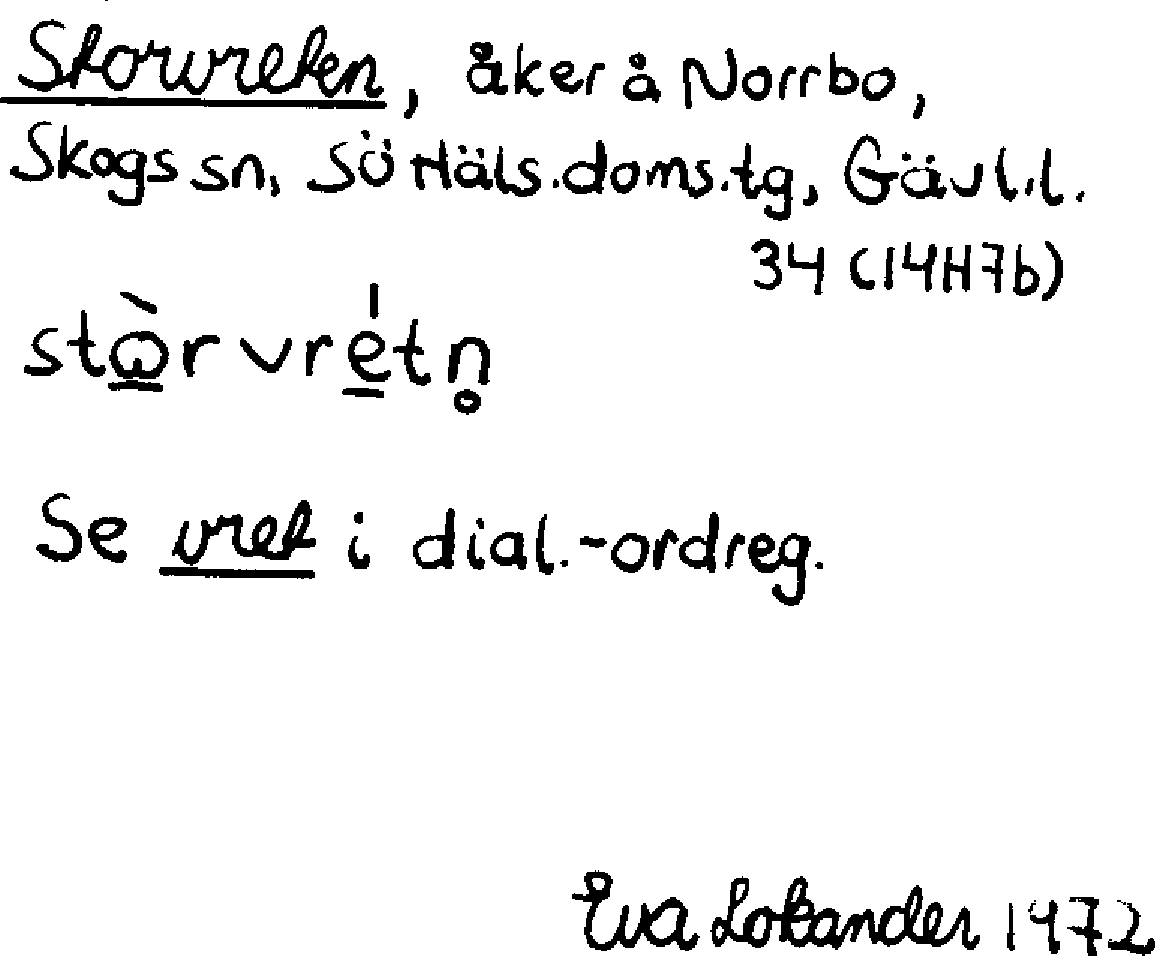 Storvreten, åker å Norrbo,
Skogs sn, Sö Häls.doms.tg, Gävl.l.
34 (14H7b)
stὼ̲r vre̲̍tn̥
Se vret i dial.-ordreg.
Eva Lokander 1972